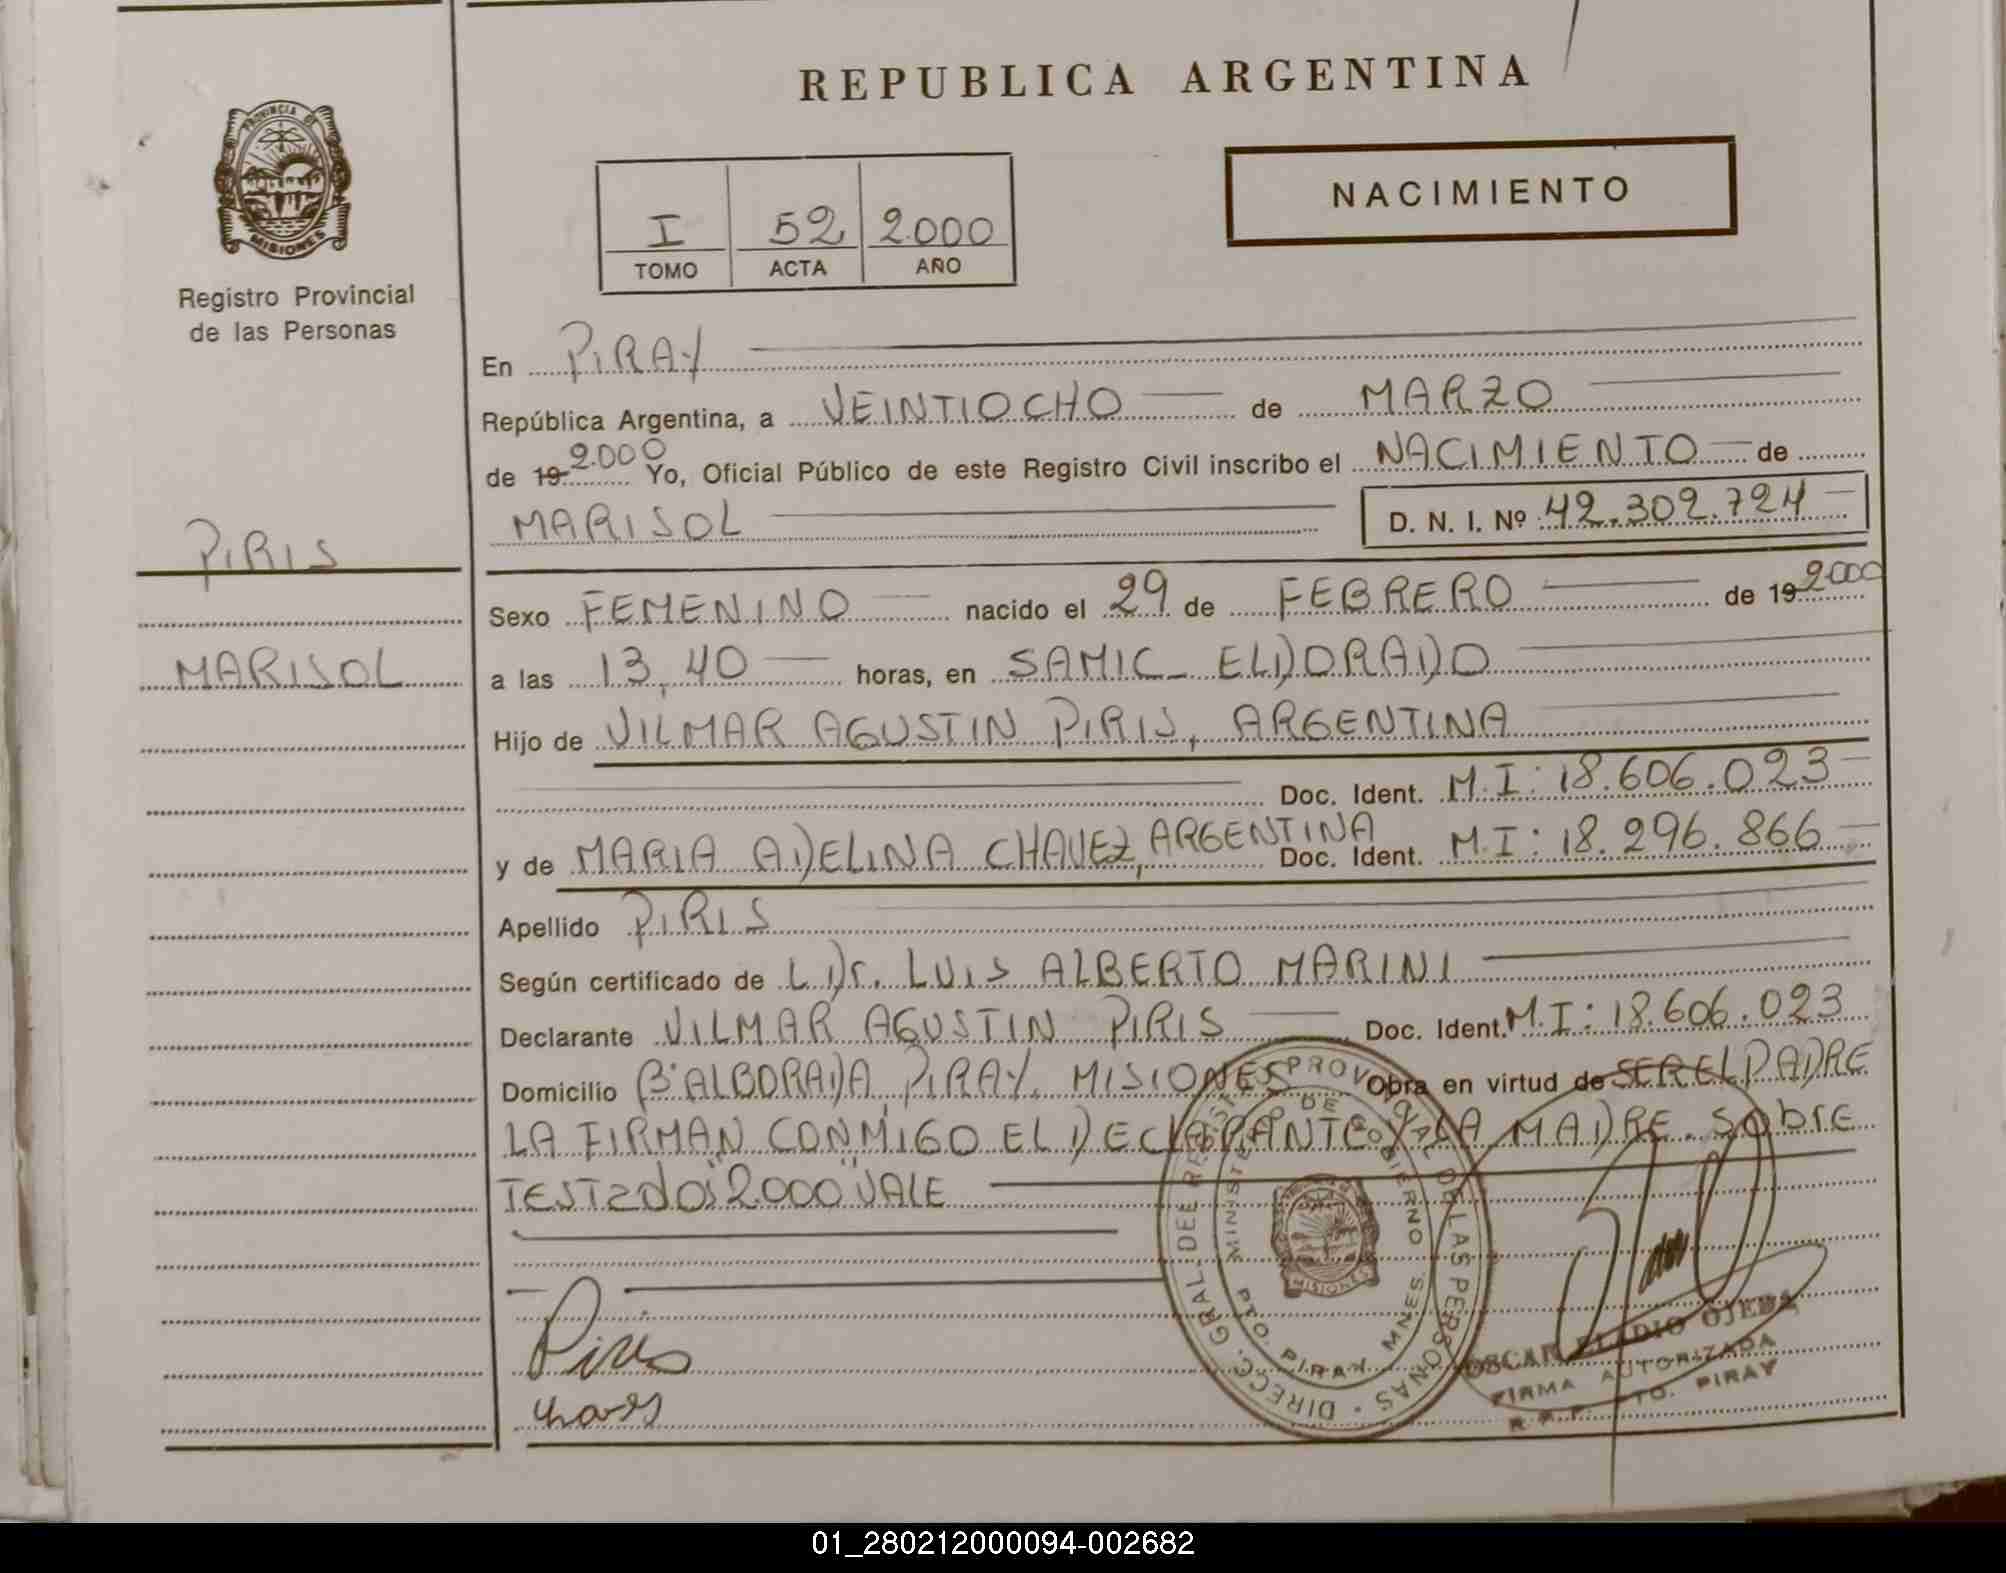 REPUBLICA ARGENTINA
PROVINCIA DE
MISIONES
Registro Provincial
de las Personas
NACIMIENTO
I 52 2.000
TOMO ACTA AÑO
En PIRAY
República Argentina, a VEINTIOCHO de MARZO
de 19 2.000 Yo, Oficial Público de este Registro Civil inscribo el NACIMIENTO de
MARISOL D. N. I. Nº 42.302.724
PIRIS
MARISOL
Sexo FEMENINO nacido el 29 de FEBRERO de 19 2.000
a las 13,40 horas, en SAMIC_ ELDORADO
Hijo de VILMAR AGUSTIN PIRIS, ARGENTINA
Doc. Ident. M.I: 18.606.023
y de MARIA ADELINA CHAVEZ, ARGENTINA Doc. Ident. M.I: 18.296.866
Apellido PIRIS
Según certificado de L Dr. LUIS ALBERTO MARINI
Declarante VILMAR AGUSTIN PIRIS Doc. Ident. M.I: 18.606.023
Domicilio Bº ALBORADA, PIRAY. MISIONES Obra en virtud de SER EL PADRE
LA FIRMAN CONMIGO EL DECLARANTE Y LA MADRE. Sobre
TESTado: 2.000 "VALE
DIRECC. GRAL. DEL REGISTRO PROVINCIAL DE LAS PERSONAS
MINISTERIO DE GOBIERNO
PTO. PIRAY MNES.
MISIONES
Piris
OSCAR ELADIO OJEDA
FIRMA AUTORIZADA
R.P.P. PTO. PIRAY
01_280212000094-002682